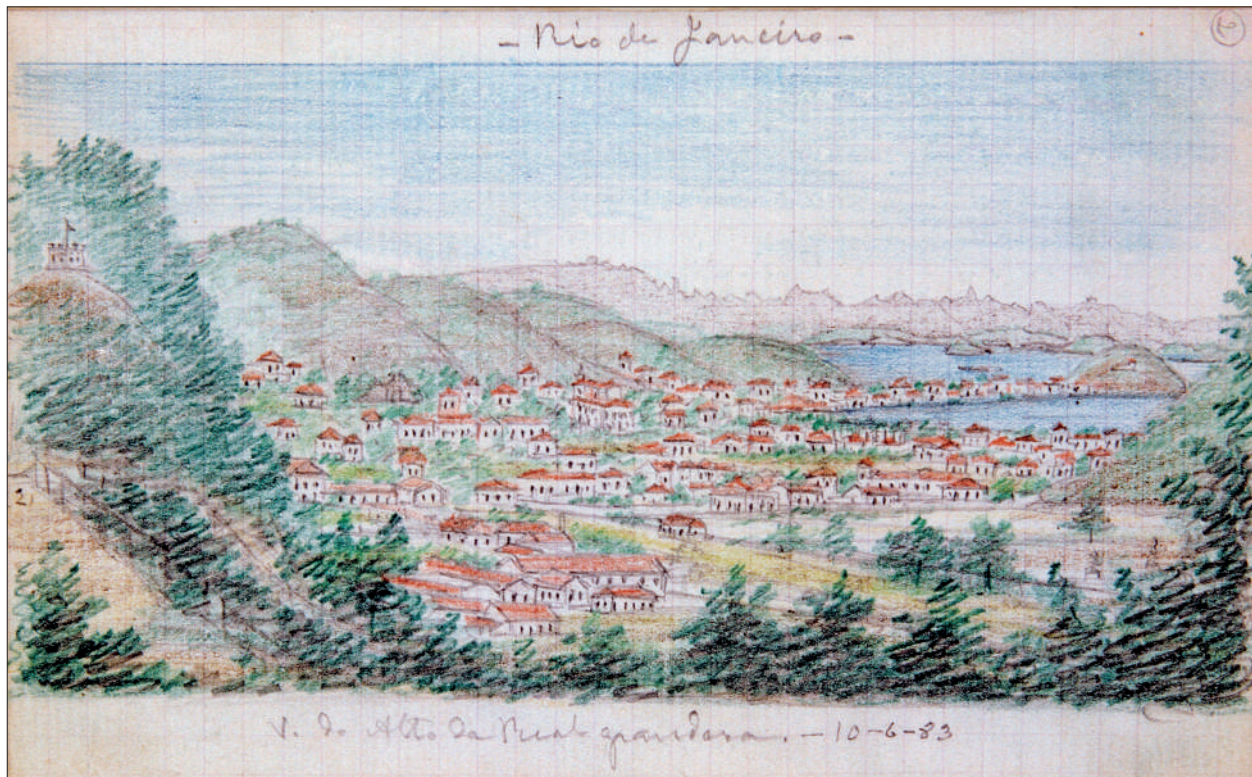 - Rio de Janeiro -
V. do Alto da Real grandesa. - 10-6-83